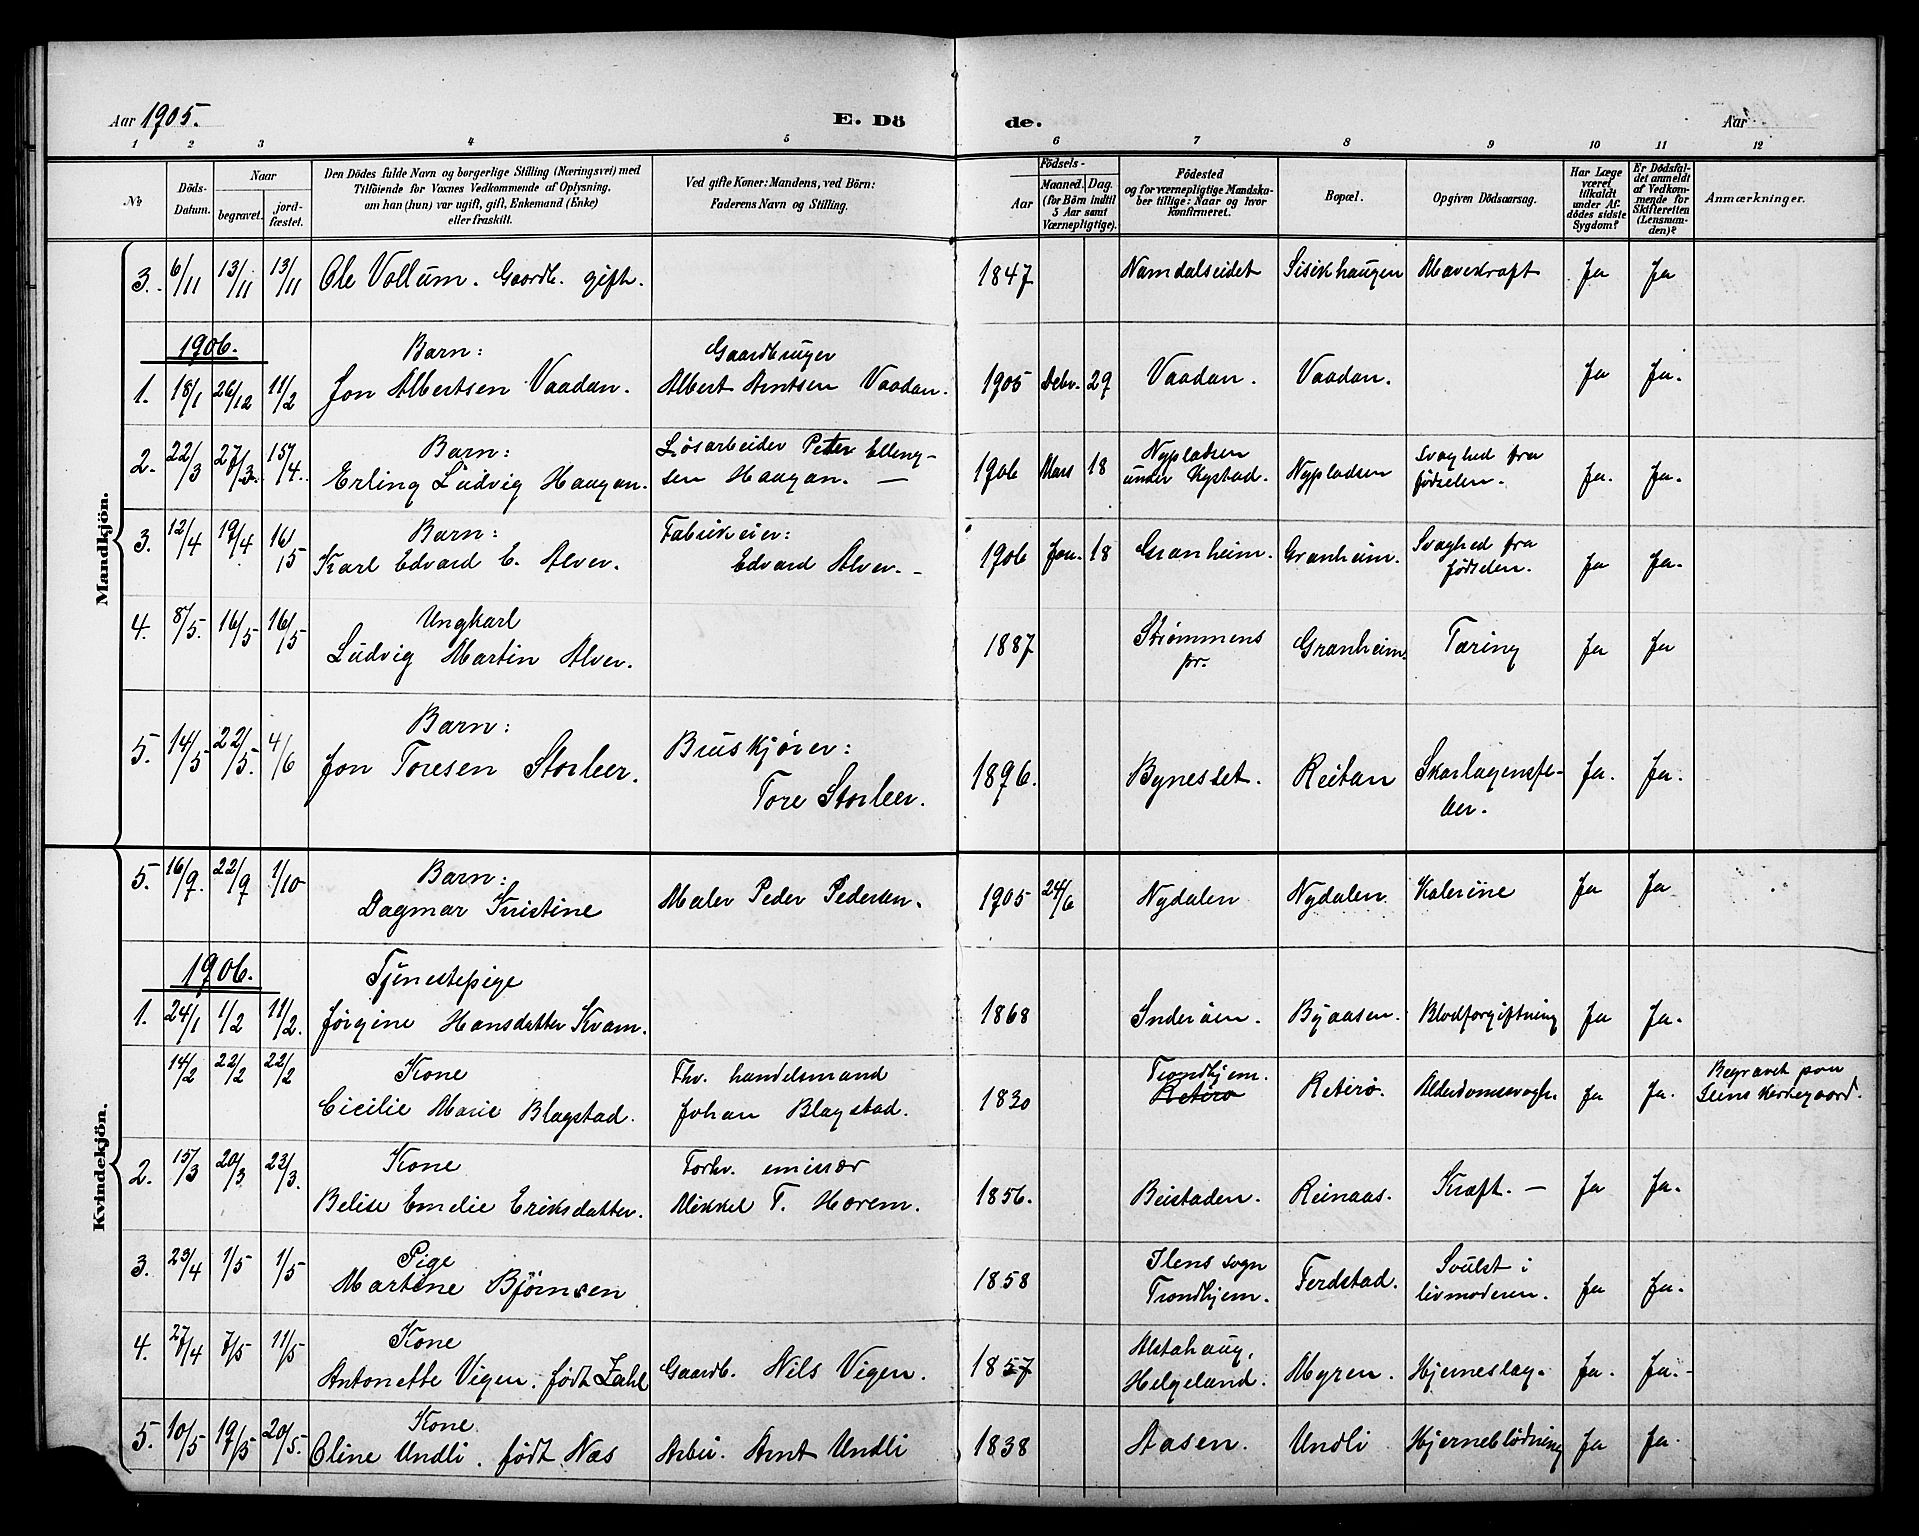 Aar 1905.
E. Dö
de.
Aar
1 2 3 4 5 6 7 8 9 10 11 12
No
Döds-Datum.
Naar
begravet.
jord-fæstet.
Den Dödes fulde Navn og borgerlige Stilling (Næringsvei) med
Tilföiende for Voxnes Vedkommende af Oplysning,
om han (hun) var ugift, gift, Enkemand (Enke)
eller fraskilt.
Ved gifte Koner: Mandens, ved Börn:
Faderens Navn og Stilling.
Födsels-
Aar
Maaned. Dag.
(for Börn indtil
5 Aar samt
Værnepligtige).
Födested
og for værnepligtige Mandska-
ber tillige: Naar og hvor
konfirmeret.
Bopæl.
Opgiven Dödsaarsag.
Har Læge
været
tilkaldt
under Af-
dödes sidste
Sygdom?
Er Dödsfal-
det anmeldt
af Vedkom-
mende for
Skifteretten
(Lensman-
den)?
Anmærkninger.
Mandkjön.
3. 6/11 13/11 13/11 Ole Vollum. Gaardb. gift. 1847 Namdalseidet Sisikhaugen Mavekraft Ja Ja
1906.
Barn: Gaardbruger
1. 18/1 26/12 11/2 Jon Albertsen Vaadan. Albert Arntsen Vaadan. 1905 Debr. 29 Vaadan. Vaadan. Ja Ja.
Barn: Løsarbeider Peter Elling- Nypladsen Svaghed fra
2. 22/3 27/3. 15/4. Erling Ludvig Haugan. sen Haugan. — 1906 Mars 18 under Kystad. Nypladsen fødselen. Ja. Ja.
Barn: Fabrikeier: Svaghed fra
3. 12/4 19/4 16/5 Karl Edvard E. Alver. Edvard Alver. - 1906 Jan. 18 Granheim. Granheim. fødselen. Ja Ja.
Ungkarl Strømmens
4. 8/5. 16/5 16/5 Ludvig Martin Alver. 1887 pr. Granheim. Tæring Ja Ja
Barn: Bruskjører:
5. 14/5 22/5. 4/6 Jon Toresen Storleer. Tore Storleer. 1896. Byneslet. Reitan Skarlagensfe-
ber. Ja. Ja.
Kvindekjön.
Barn:
5. 16/9. 22/9 1/10 Dagmar Kristine Maler Peder Pedersen. 1905 24/6 Nydalen Nydalen Kolerine Ja Ja
1906.
Tjenestepige
1. 24/1 1/2 11/2. Jørgine Hansdatter Kvam. 1868 Inderøen. Byaasen. Blodforgiftning Ja Ja.
Kone Fhv. handelsmand Trondhjem. Begravet paa
14/2 22/2 22/2 Cicilie Marie Blagstad. Johan Blagstad. 1830 Retirø Retirø. Alderdomssvagh. Ja Ja. Leins Kirkegaard.
Kone Forhv. emissær
2. 15/3 20/3 23/3. Belise Emelie Eriksdatter. Mikkel T. Horem. 1856. Beistaden. Reinaas. Kræft. — Ja Ja.
Pige Ilens sogn Svulst i
3. 23/4 1/5 1/5 Martine Bjørnsen 1858 Trondhjem. Ferdstad. livmoderen. Ja Ja.
Kone Alstahaug,
4. 27/4 7/5 11/5 Antonette Vigen. født Zahl Gaardb. Nils Vigen. 1857 Helgeland. Myren. Hjerneslag. Ja. Ja.-
Kone.
5. 10/5 19/5 20/5. Oline Undli. født Næs Arbei. Arnt Undli 1838 Aasen. Undli. Hjerneblødning Ja Ja.